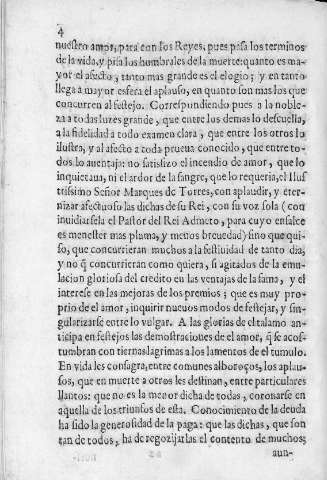 4
nuestro amor, para con los Reyes, pues pasa los terminos
de la vida, y pisa los hombrales de la muerte: quanto es ma-
yor el afecto, tanto mas grande es el elogio; y en tanto
llega a mayor esfera el aplauso, en quanto son mas los que
concurren al festejo. Correspondiendo pues a la noble-
za a todas luzes grande, que entre los demas lo descuella,
a la fidelidad a todo examen clara, que entre los otros lo
ilustra, y al afecto a toda prueua conocido, que entre to-
dos lo auentaja: no satisfizo el incendio de amor, que lo
inquietaua, ni el ardor de la sangre, que lo requeria, el Ilus
trissimo Señor Marques de Torres, con aplaudir, y eter-
nizar afectuoso las dichas de su Rei, con su voz sola (con
inuidiarsela el Pastor del Rei Admeto, para cuyo ensalce
es menester mas pluma, y menos breuedad) sino que qui-
so, que concurrieran muchos a la festiuidad de tanto dia;
y no q̃ concurrieran como quiera, si agitados de la emu-
lacion gloriosa del credito en las ventajas de la fama, y el
interese en las mejoras de los premios; que es muy pro-
prio de el amor, inquirir nueuos modos de festejar, y sin-
gularizarse entre lo vulgar. A las glorias de el talamo an-
ticipa en festejos las demostraciones de el amor, q̃ se acos-
tumbran con tiernas lagrimas a los lamentos de el tumulo.
En vida les consagra, entre comunes alboroços, los aplau-
sos, que en muerte a otros les destinan, entre particulares
llantos: que no es la menor dicha de todas, coronarse en
aquella de los triunfos de esta. Conocimiento de la deuda
ha sido la generosidad de la paga: que las dichas, que son
tan de todos, ha de regozijarlas el contento de muchos;
aun-